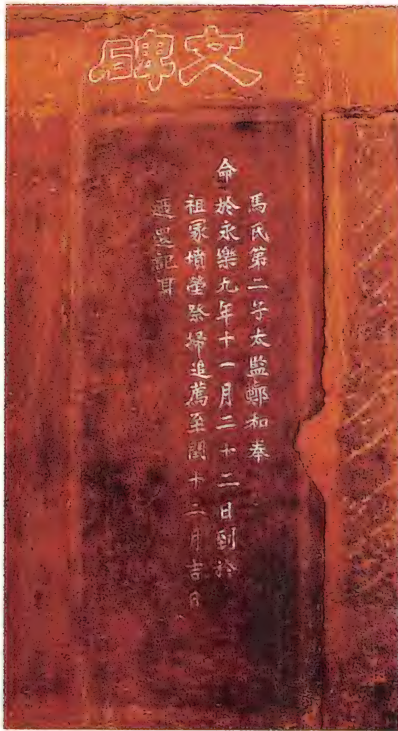 文碑
馬氏第二子太監鄭和奉
命於永樂九年十一月二十二日到於
祖冢墳塋祭掃追薦至閏十二月吉日
乃還記耳